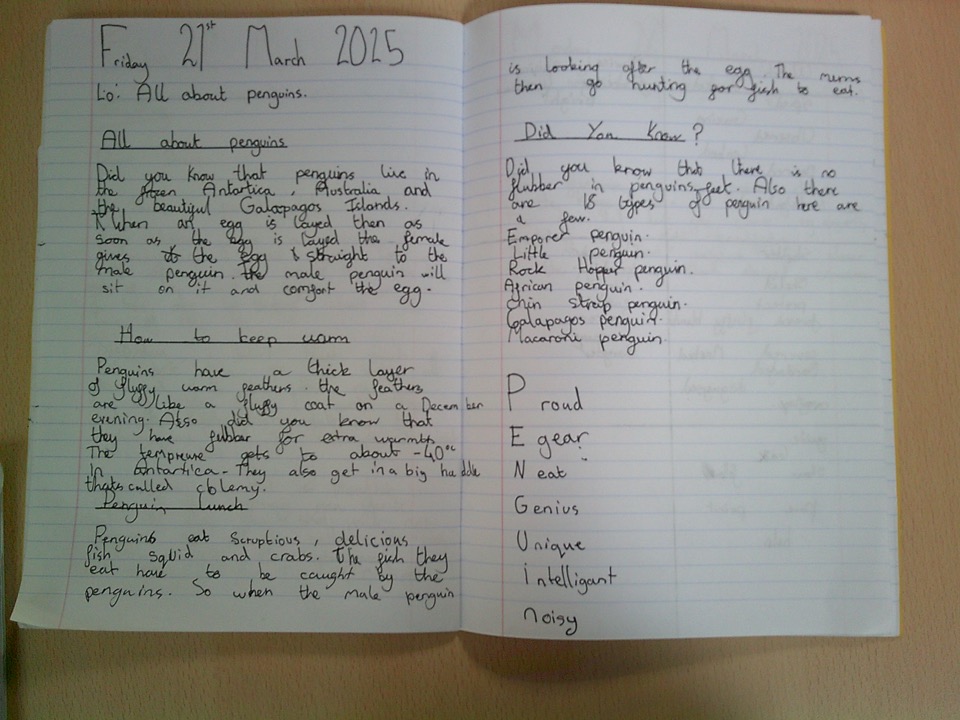 Friday 21st March 2025
Lo: All about penguins.
All about penguins
Did you know that penguins live in
the frozen Antartica, Australia and
the beautiful Galapagos Islands.
When an egg is layed then as
soon as the egg is layed the female
gives the egg straight to the
male penguin. the male penguin will
sit on it and comfort the egg.
How to keep warm
Penguins have a thick layer
of fluffy warm feathers. the feathers
are like a fluffy coat on a December
evening. Also did you know that
they have flubber for extra warmth.
The tempreure gets to about -40°c
in antartica. They also get in a big huddle
thats called colemy.
Penguin lunch
Penguins eat scruptious, delicious
fish squid and crabs. The fish they
eat have to be caught by the
penguins. So when the male penguin
is looking after the egg. The mums
then go hunting for fish to eat.
Did You Know?
Did you know that there is no
flubber in penguins feet. Also there
are 18 types of penguin here are
a few.
Emporer penguin.
Little penguin.
Rock Hopper penguin.
African penguin.
Chin strap penguin.
Galapagos penguin.
Macaroni penguin.
Proud
Egear
Neat
Genius
Unique
intelligant
noisy